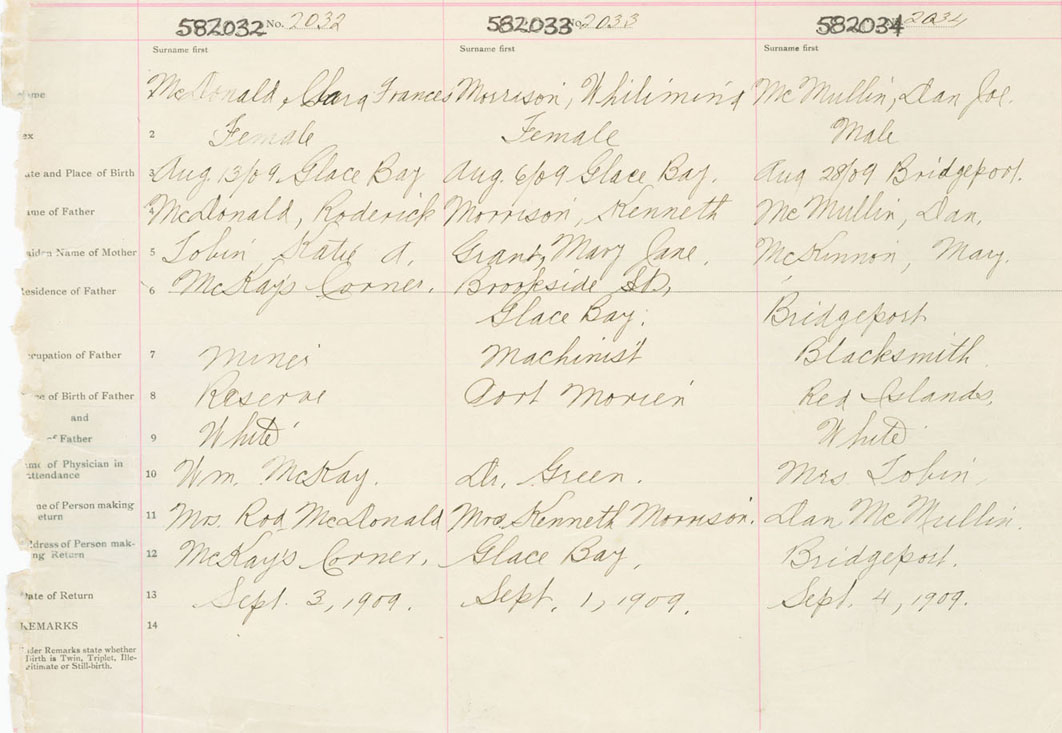 582032 No. 2032 582033 No. 2033 582034 2034
Surname first Surname first Surname first
McDonald, Clara Frances Morrison, Whilimina McMullin, Dan Joe.
2 Female Female Male
ate and Place of Birth 3 Aug 13/09 Glace Bay Aug. 6/09 Glace Bay. Aug 28/09 Bridgeport.
ame of Father 4 McDonald, Roderick Morrison, Kenneth McMullin, Dan.
aiden Name of Mother 5 Tobin Katie A. Grant, Mary Jane. McKinnon, Mary.
esidence of Father 6 McKay's Corner. Brookside St,
Glace Bay. Bridgeport
cupation of Father 7 Miner Machinist Blacksmith
e of Birth of Father 8 Reserve Port Morien Red Islands.
and
Father 9 White White
me of Physician in
ttendance 10 Wm. McKay. Dr. Green. Mrs Tobin
ne of Person making
eturn 11 Mrs. Rod McDonald Mrs. Kenneth Morrison. Dan McMullin.
ddress of Person mak-
ng Return 12 McKay's Corner. Glace Bay, Bridgeport.
ate of Return 13 Sept. 3, 1909. Sept. 1, 1909. Sept. 4, 1909.
REMARKS 14
der Remarks state whether
Birth is Twin, Triplet, Ille-
gitimate or Still-birth.